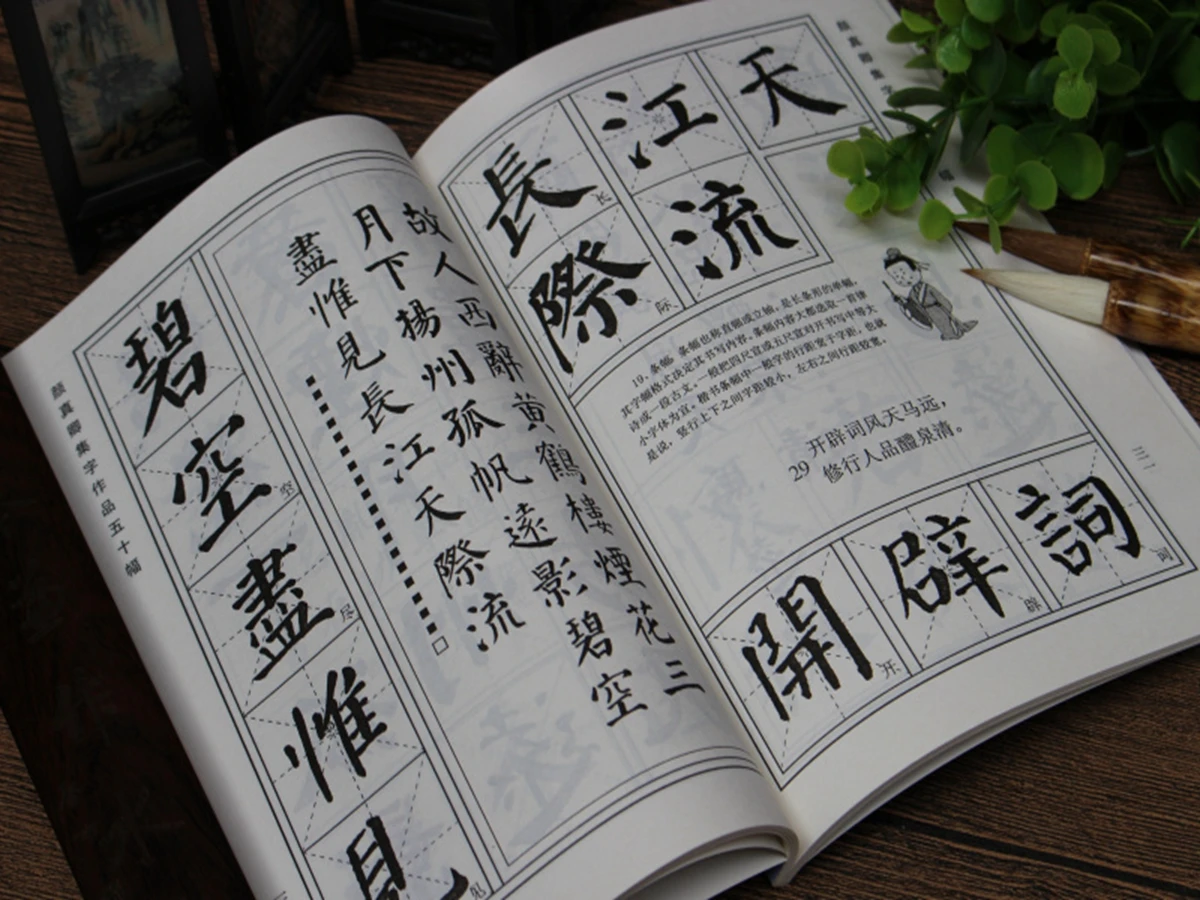 颜真卿集字作品五十幅
碧
空
空
盡
尽
惟
見
见
故人西辭黄鶴樓煙花三
月下揚州孤帆遠影碧空
盡惟見長江天際流
颜真卿集字
幅
長江天
长
際流
际
19、条幅。条幅也称直幅或立轴，是长条形的单幅，
其字幅格式决定其书写内容。条幅内容大都选取一首律
诗或一段古文。一般把四尺宣或五尺宣对开书写中等大
小字体为宜。楷书条幅中一般字的行距宽于字距，也就
是说，竖行上下之间字距较小，左右之间行距较宽。
29 开辟词风天马远，
修行人品醴泉清。
開辟詞
开 辟 词
三一